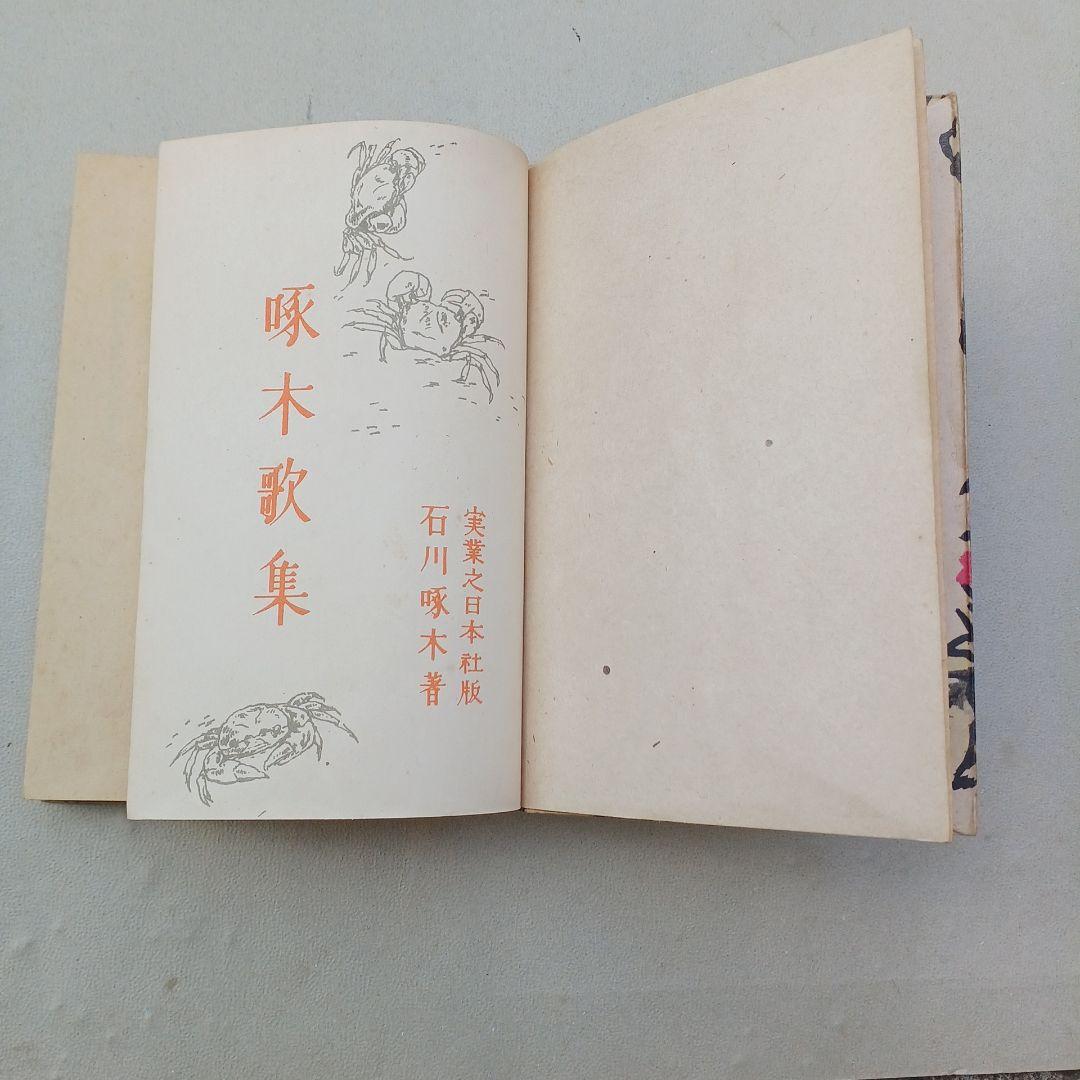 実業之日本社版
石川啄木著
啄木歌集